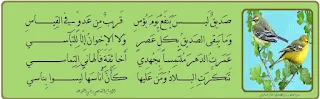 صديق ليس ينفع يوم بؤس قريب من عدو في القياس
وما يبقى الصديق بكل عصر ولا الإخوان إلا للتآسي
عمرت الدهر ملتمسا بجهدي أخا ثقة فألهاني التماسي
تنكرت البلاد ومن عليها كأن أناسها ليسوا بناسي